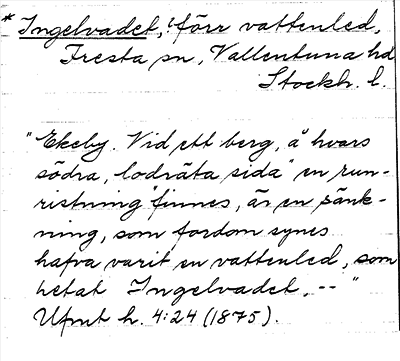 * Ingelvadet, förr vattenled,
Fresta sn, Vallentuna hd
Stockh. l.
"Ekeby. Vid ett berg, å hvars
södra, lodräta sida en run-
ristning finnes, är en sänk-
ning, som fordom synes
hafva varit en vattenled, som
hetat Ingelvadet. -- "
Ufmt h. 4:24 (1875).